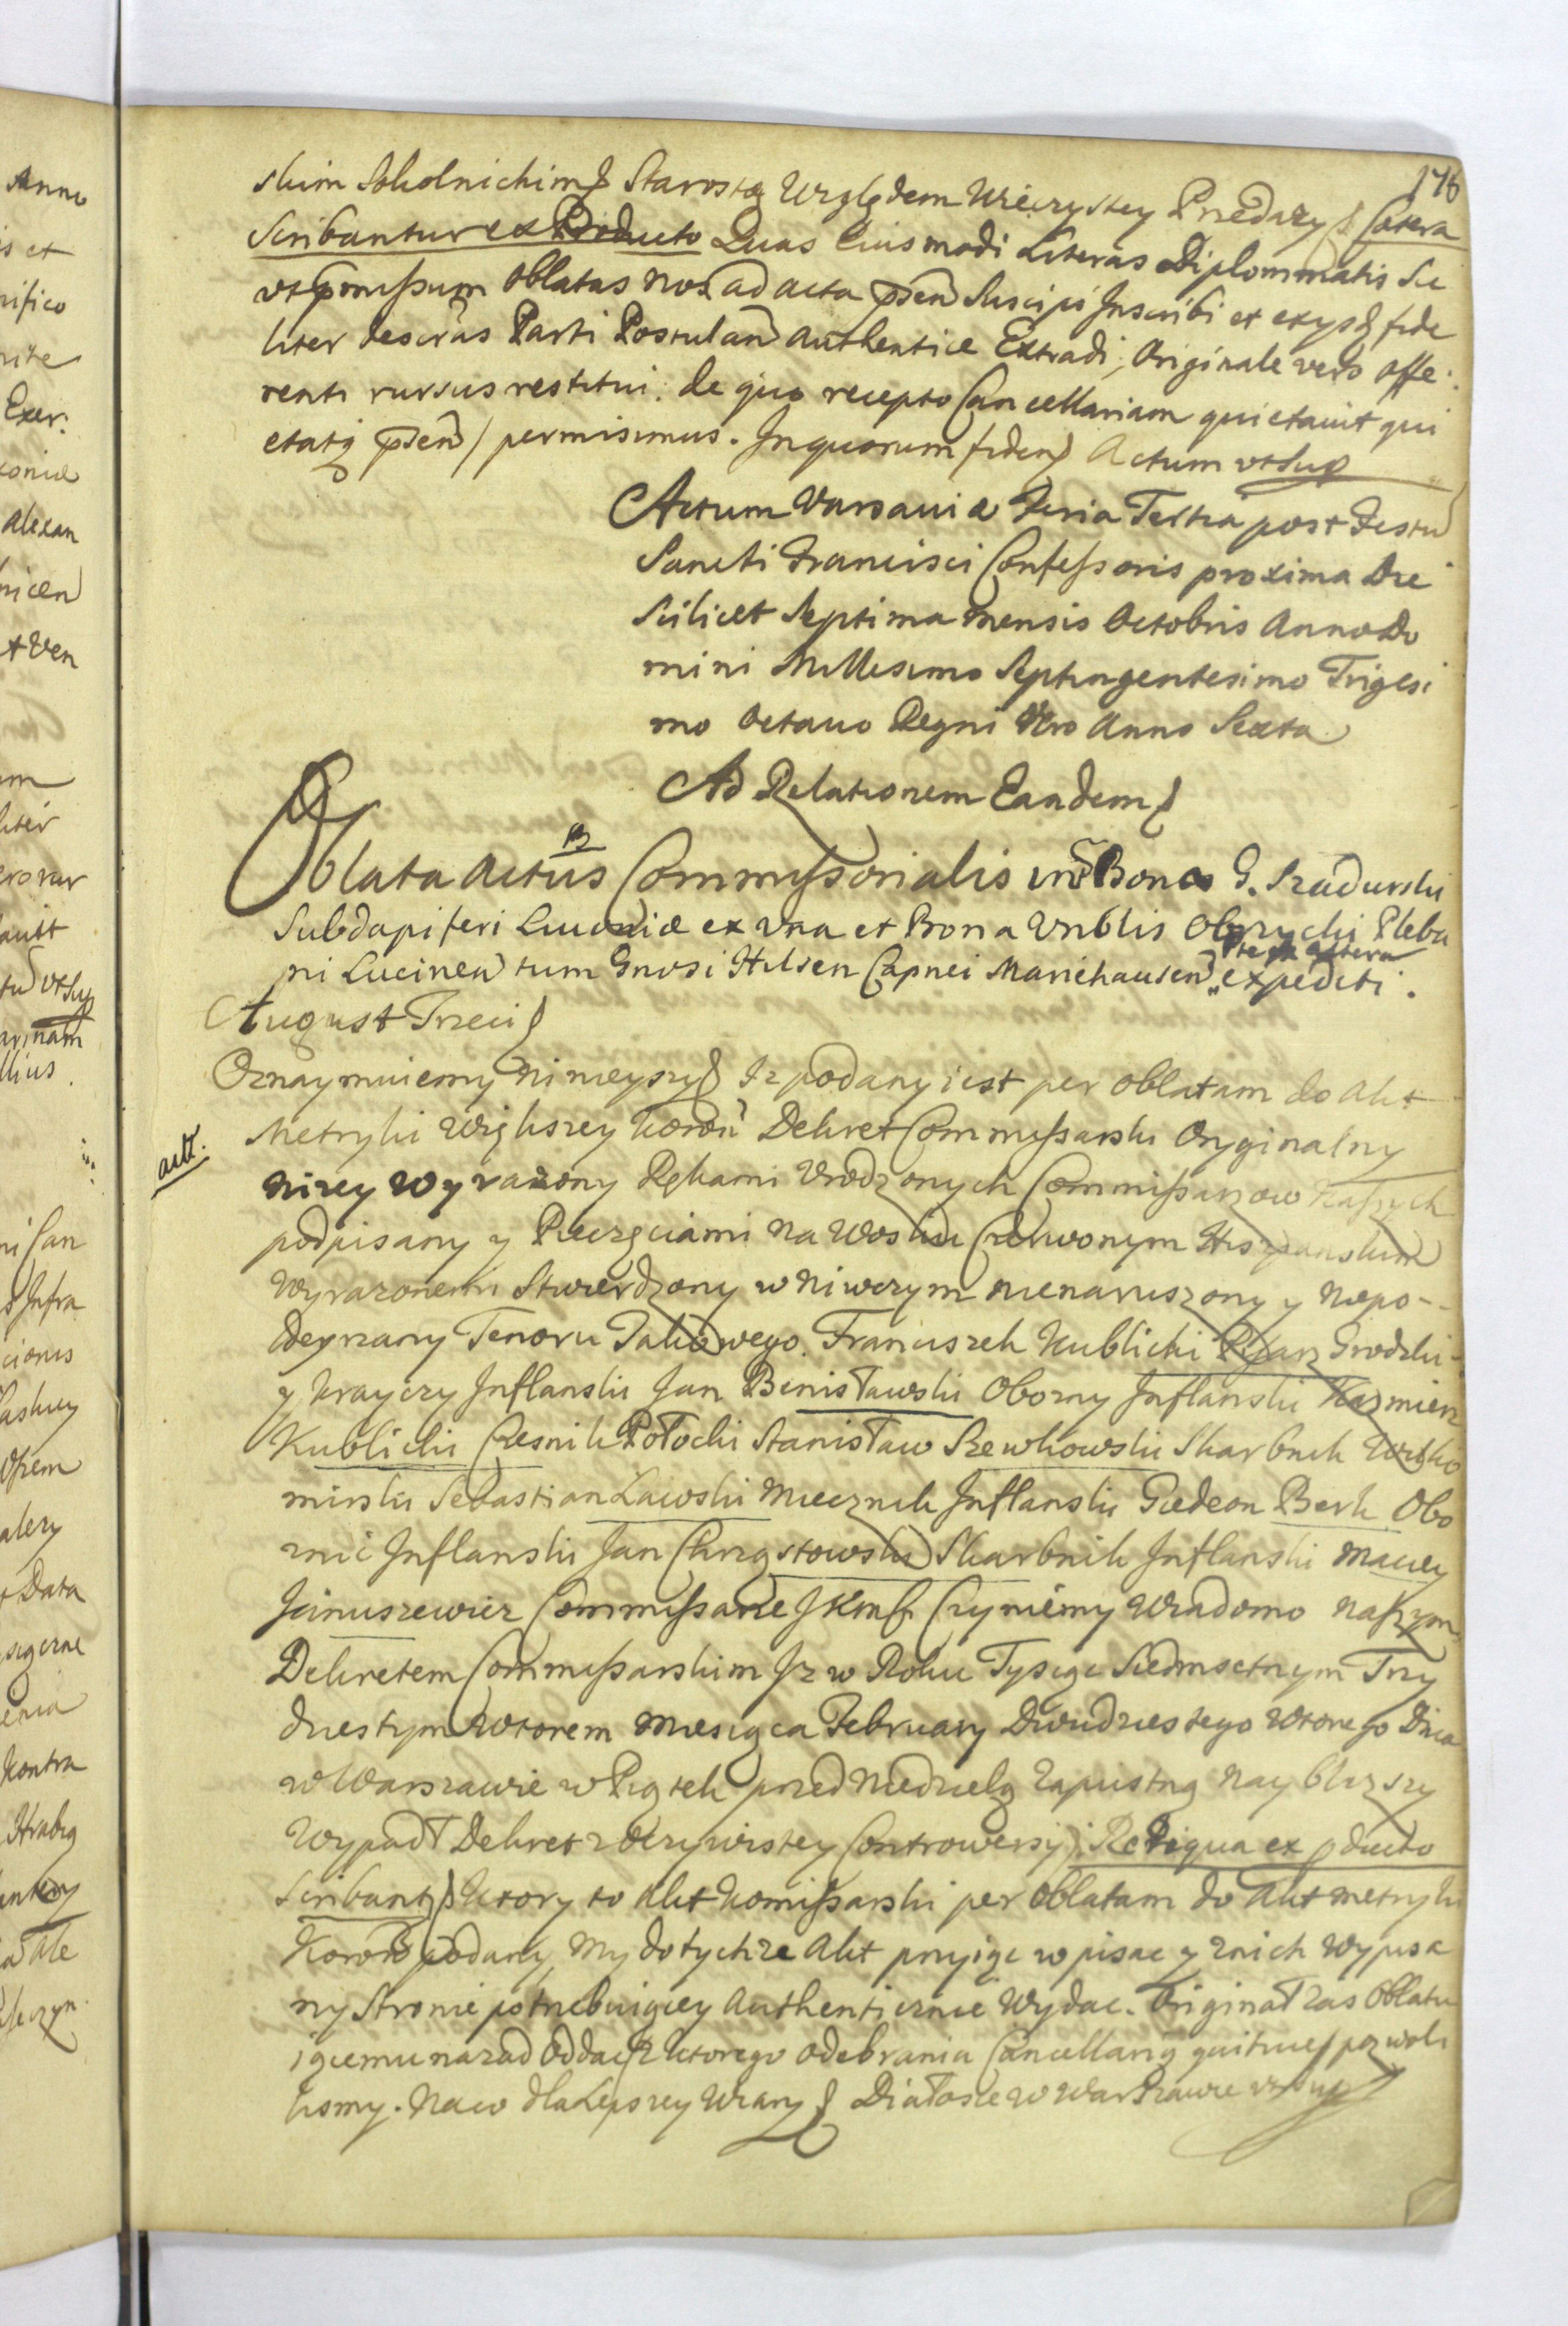 176
skim Sokolnickim Starostą Względem Wieczystey Przedaży Cætera
Scribantur ex Producto Quas Eiusmodi Literas Diplommatis Su
ut pmissum Oblatas Nos ad acta psen Suscipi Inscribi et exijs fide
liter descras Parti Postulan Authentice Extradi, Originale vero offe
renti rursus restitui, de quo recepto Cancellariam quietavit qui
etatq psen / permisimus. In quorum fidem Actum ut Sup
Actum Varsaviæ Feria Tertia post Festu
Sancti Francisci Confessoris proxima Die
Scilicet Septima mensis Octobris Anno Do
mini Millesimo Septingentesimo Trigesi
mo Octavo Regni Vro Anno Sexto
Ad Relationem Eandem
Oblata Actus Commissorialis intr Bona G. Szadurski
Subdapiferi Livoniæ ex una et Bona Vnblis Obrycki Pleba
pte ex altera
ni Lucinen tum Gnosi Hilsen Capnei Mariehausen expediti.
August Trzeci
Oznaymuiemy Ninieyszy Iz podany iest per oblatam do Akt
Metryki Większey Koron Dekret Commissarski Oryginalny
akt.
Nizey Wyrażony Rękami Vrodzonych Commissarzow Naszych
podpisany y Pieczęciami na Wosku Czerwonym Hiszpanskim
Wyrazonemi Stwierdzony w Niwczym nienaruszony y Niepo-
deyrzany Tenoru Takowego. Franciszek Kublicki Pisarz Grodzki
y Krayczy Inflanski Jan Benisławski Oborny Inflanski Kazmierz
Kublicki Czesnik Połocki Stanisław Szewkowski Skarbnik Wilko
mirski Sebastian Lawski Miecznik Inflanski Gedeon Berk Obo
znic Inflanski Jan Chrząstowski Skarbnik Inflanski Maciey
Januszewicz Commissarze JKMsc Czyniemy Wiadomo Naszym
Dekretem Commissarskim Iz w Roku Tysiąc Siedmsetnym Trzy
dziestym Wtorem Miesiąca February Dwudziestego Wtorego Dnia
w Warszawie w Piątek przed Niedzielą Zapustną Nay bliższy
Wypadł Dekret z Oczywistey Controwersyi Reliqua ex pducto
Scribant Ktory to Akt Komissarski per Oblatam do Akt metryki
Koron podany, My do tychze Akt przyiąc wpisac y znich Wypisa
ny Stronie potrzebuiącey Authenticznie Wydac. Originał zas Oblatu
iącemu nazad Oddac / z ktorego odebrania Cancellarią quituie / pozwoli
lismy. Na co dla Lepszey Wiary Działosie w Warszawie ut Sup